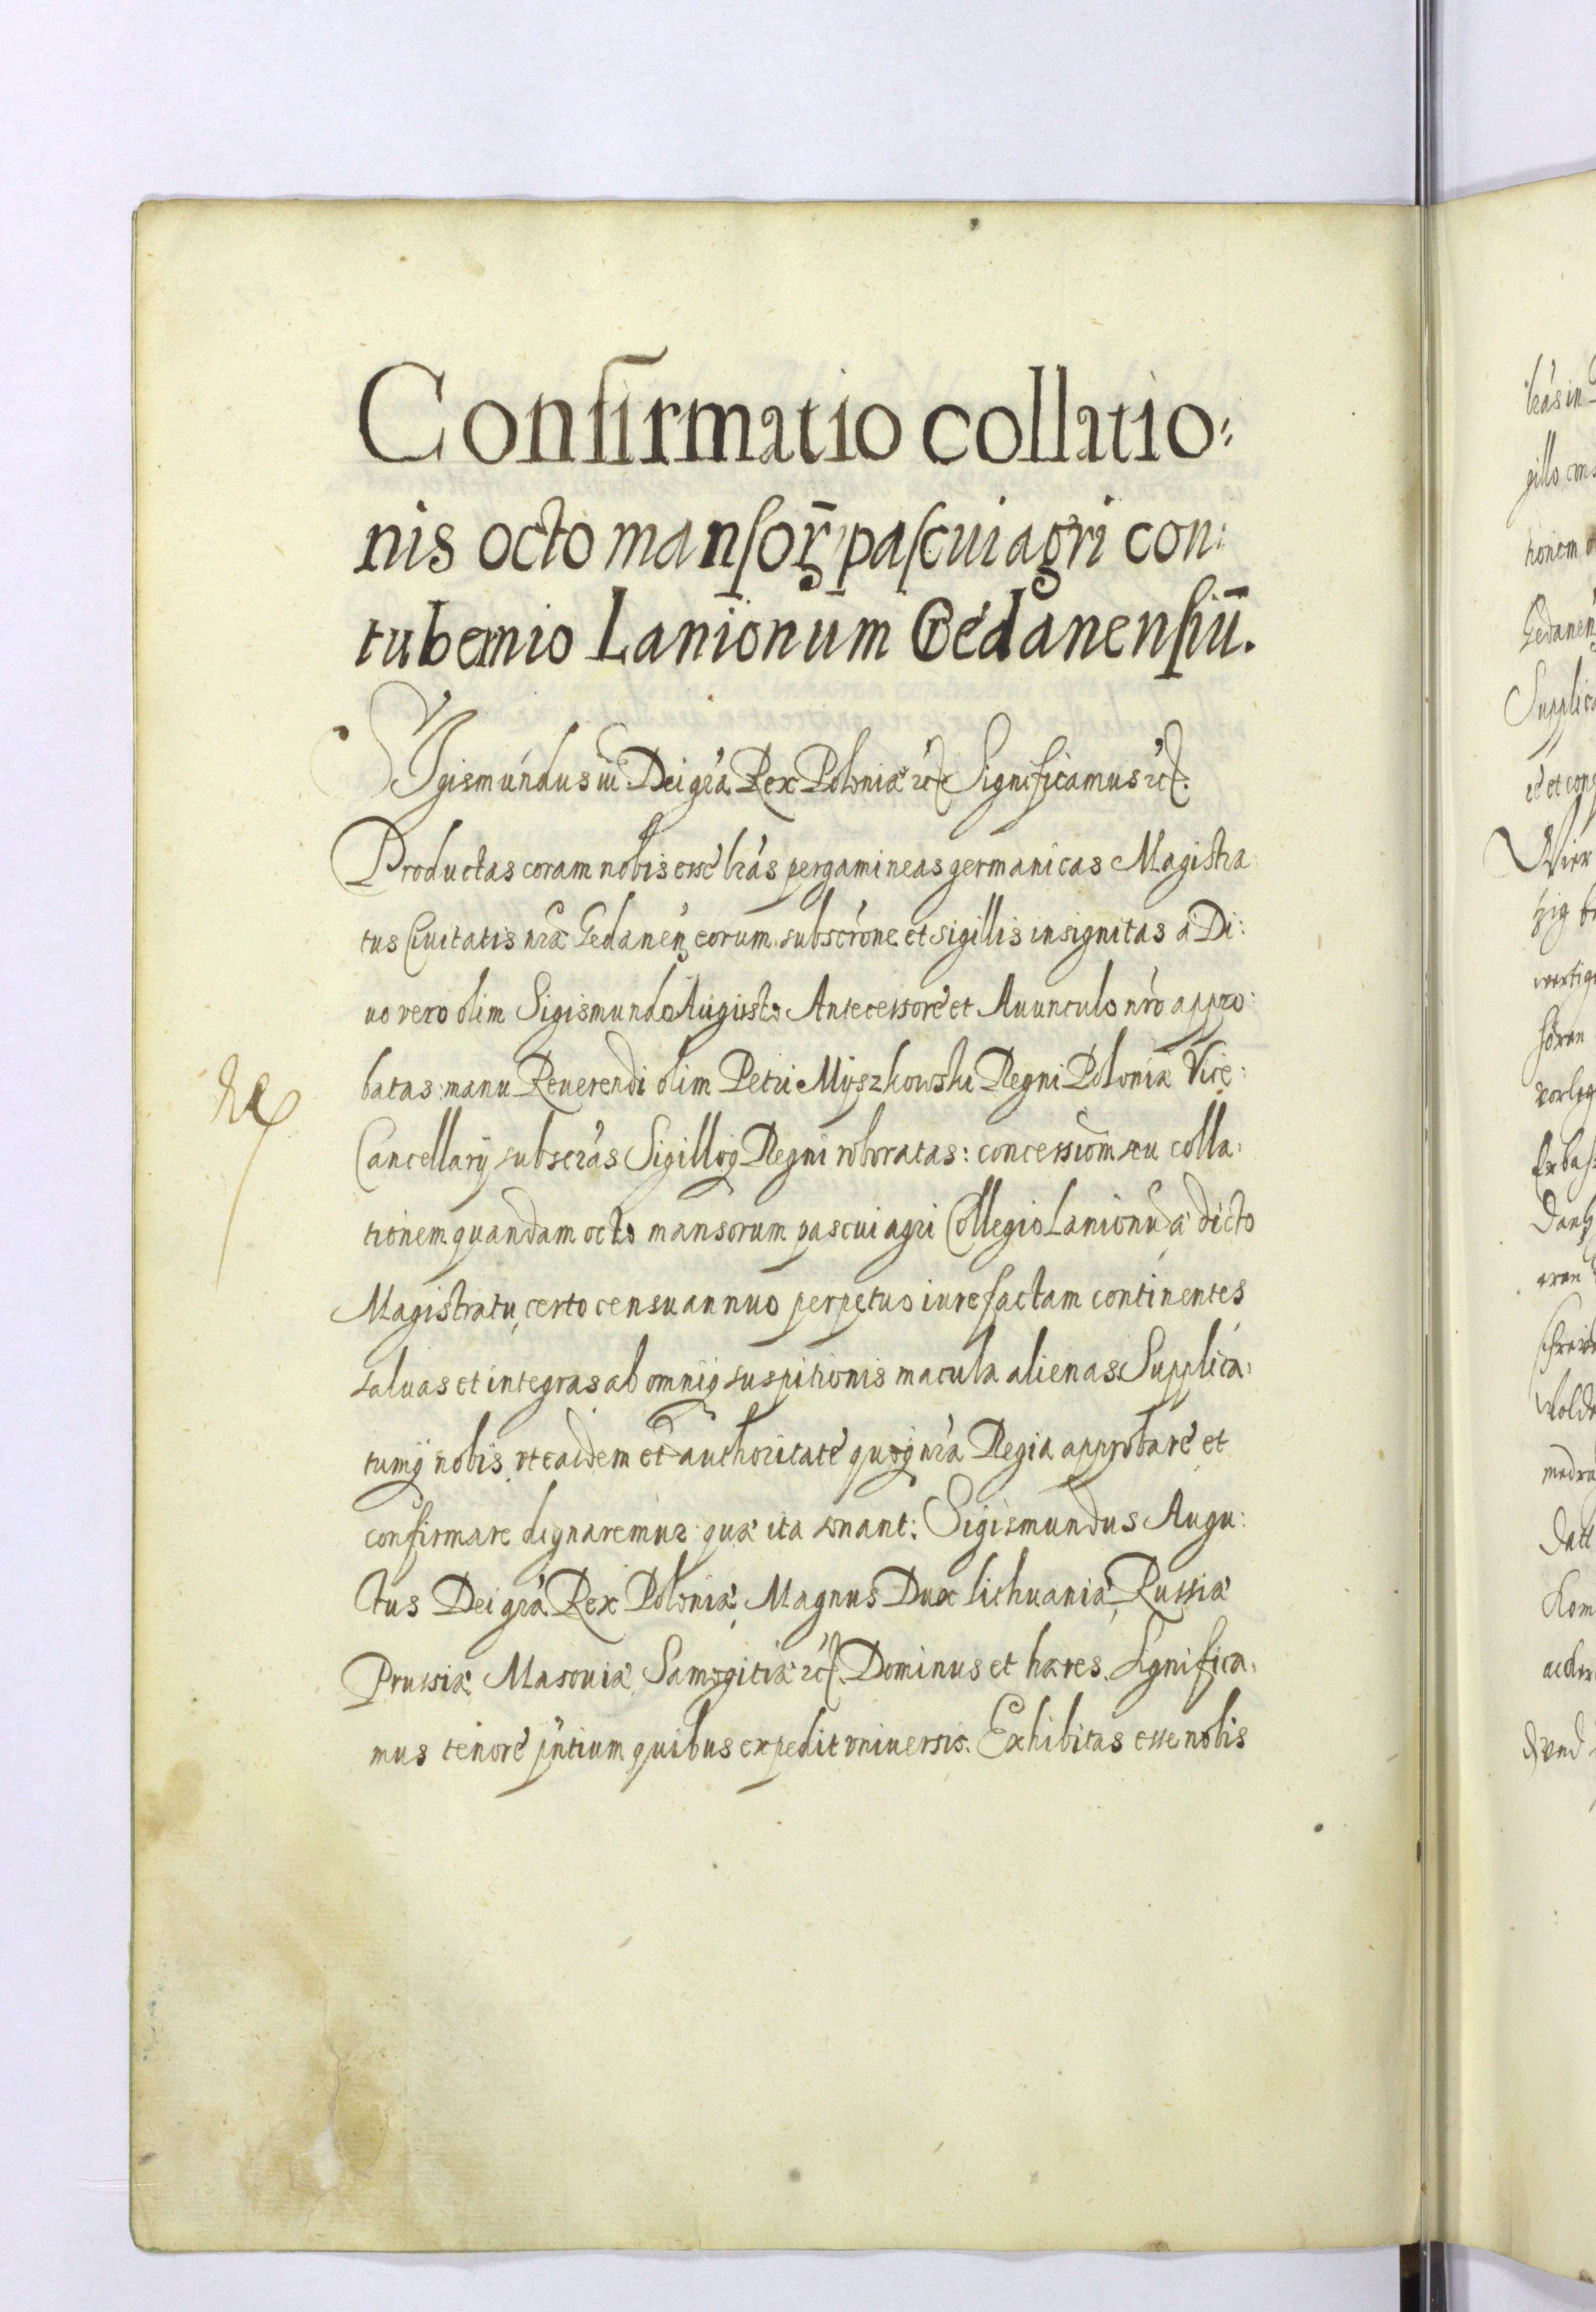 Confirmatio collatio:
nis octo mansoꝝ pascui agri con:
tubernio Lanionum Gedanensiū.
Sigismundus iii Dei gr̃a Rex Poloniæ ꝛc̃ Significamus ꝛc̃.
Productas coram nobis esse lr̃as pergamineas germanicas Magistra:
tus Ciuitatis nr̃æ Gedaneñ eorum subscr̃one et sigillis insignitas a Di:
uo vero olim Sigismundo Augusto Antecessore et Auunculo nr̃o appro:
batas: manu Reuerendi olim Petri Myszkowski Regni Poloniæ Vice:
Cancellarij subscr̃as Sigilloq̃ Regni roboratas: concessiom̃ seu colla:
tionem quandam octo mansorum pascui agri Collegio Lanionũ a dicto
Magistratu, certo censu annuo perpetuo iure factam continentes
saluas et integras ab omniq̃ suspitionis macula alienas Supplica:
tumq̃ nobis vt easdem et authoritate quoq̃ nr̃a Regia approbare et
confirmare dignaremur: quæ ita sonant: Sigismundus Augu:
stus Dei gr̃a Rex Poloniæ, Magnus Dux Lithuaniæ, Russiæ
Prussiæ, Masouiæ, Samogitiæ ꝛc̃. Dominus et hæres. Significa:
mus tenore pñtium quibus expedit vniuersis. Exhibitas esse nobis